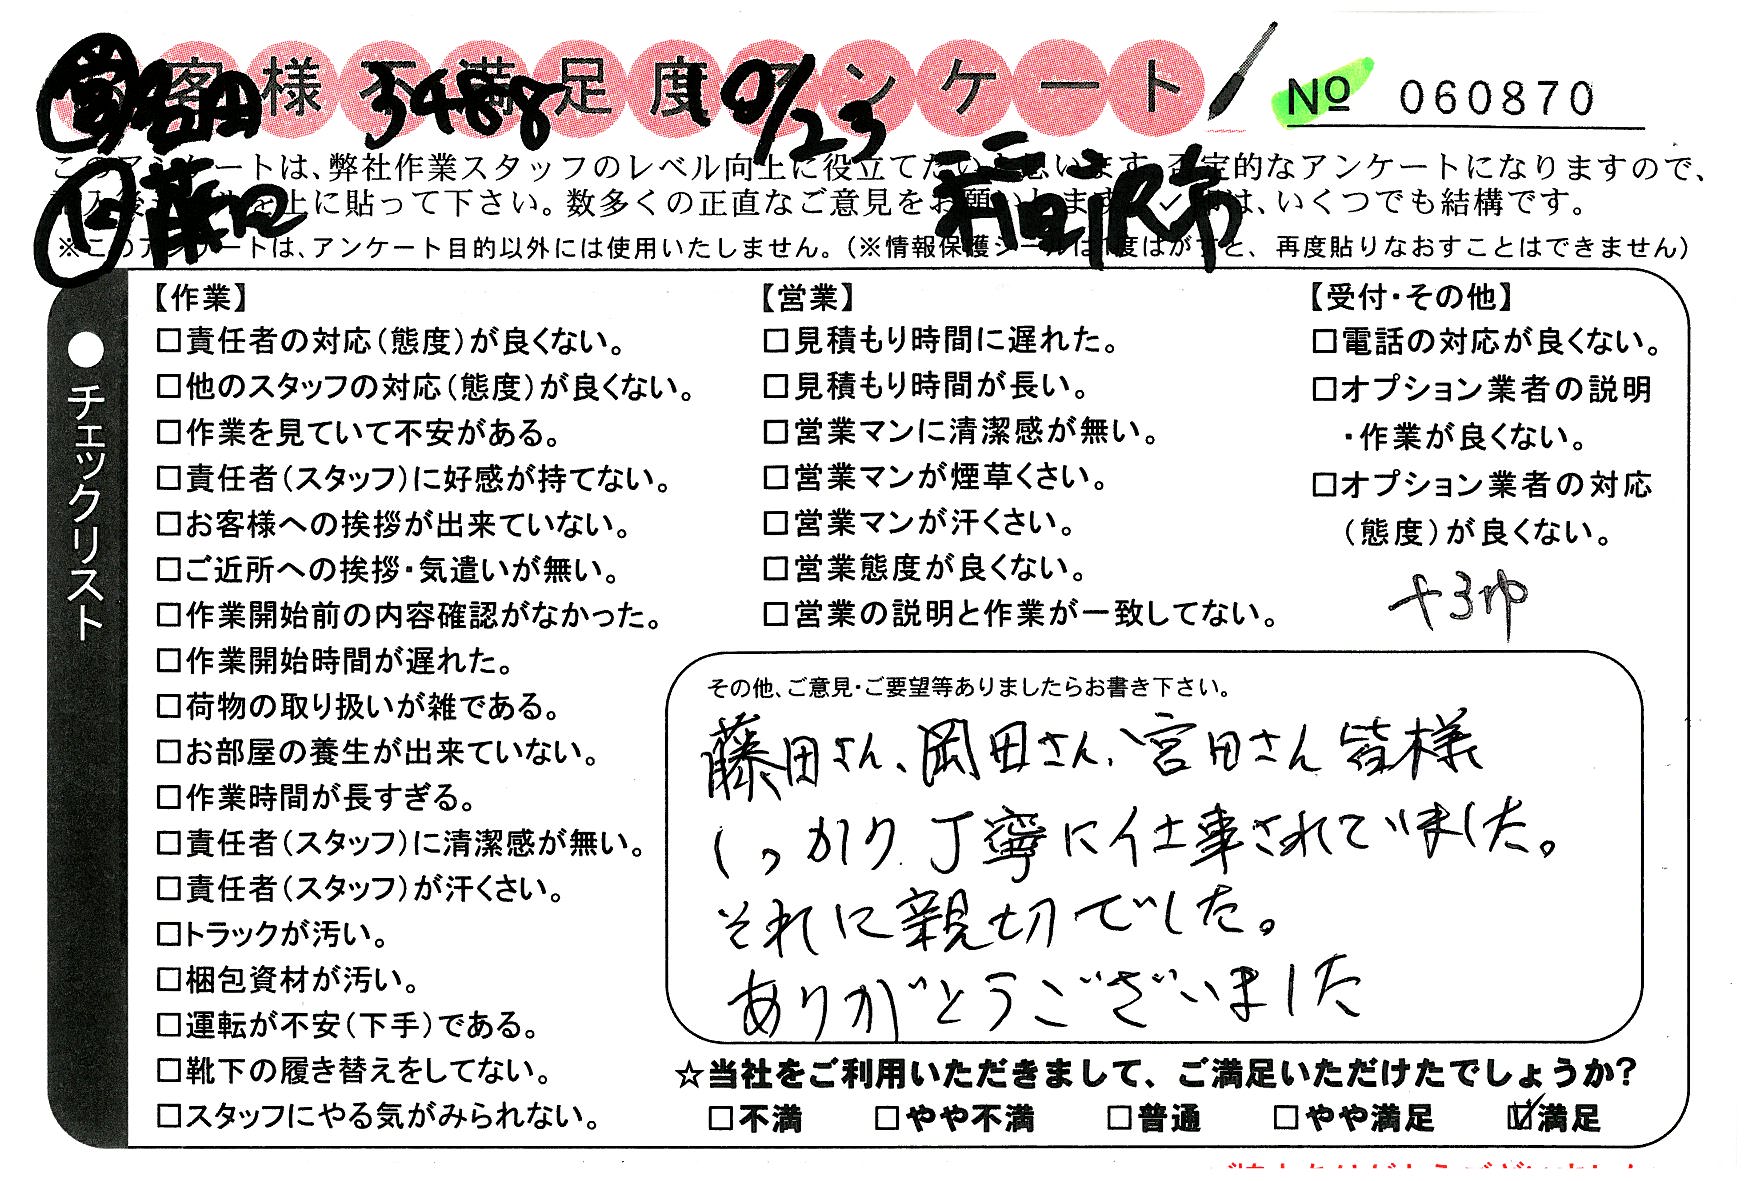 お客様不満足度アンケート
No 060870
3488 10/23
このアンケートは、弊社作業スタッフのレベル向上に役立てたいと思います。否定的なアンケートになりますので、
上に貼って下さい。数多くの正直なご意見をお願いします。✓印は、いくつでも結構です。
※このアンケートは、アンケート目的以外には使用いたしません。(※情報保護シールは1度はがすと、再度貼りなおすことはできません)
●チェックリスト
【作業】
□責任者の対応(態度)が良くない。
□他のスタッフの対応(態度)が良くない。
□作業を見ていて不安がある。
□責任者(スタッフ)に好感が持てない。
□お客様への挨拶が出来ていない。
□ご近所への挨拶・気遣いが無い。
□作業開始前の内容確認がなかった。
□作業開始時間が遅れた。
□荷物の取り扱いが雑である。
□お部屋の養生が出来ていない。
□作業時間が長すぎる。
□責任者(スタッフ)に清潔感が無い。
□責任者(スタッフ)が汗くさい。
□トラックが汚い。
□梱包資材が汚い。
□運転が不安(下手)である。
□靴下の履き替えをしてない。
□スタッフにやる気がみられない。
【営業】
□見積もり時間に遅れた。
□見積もり時間が長い。
□営業マンに清潔感が無い。
□営業マンが煙草くさい。
□営業マンが汗くさい。
□営業態度が良くない。
□営業の説明と作業が一致してない。
【受付・その他】
□電話の対応が良くない。
□オプション業者の説明
・作業が良くない。
□オプション業者の対応
(態度)が良くない。
その他、ご意見・ご要望等ありましたらお書き下さい。
藤田さん、岡田さん、宮田さん皆様
しっかり丁寧に仕事されていました。
それに親切でした。
ありがとうございました
☆当社をご利用いただきまして、ご満足いただけたでしょうか?
□不満 □やや不満 □普通 □やや満足 ☑満足